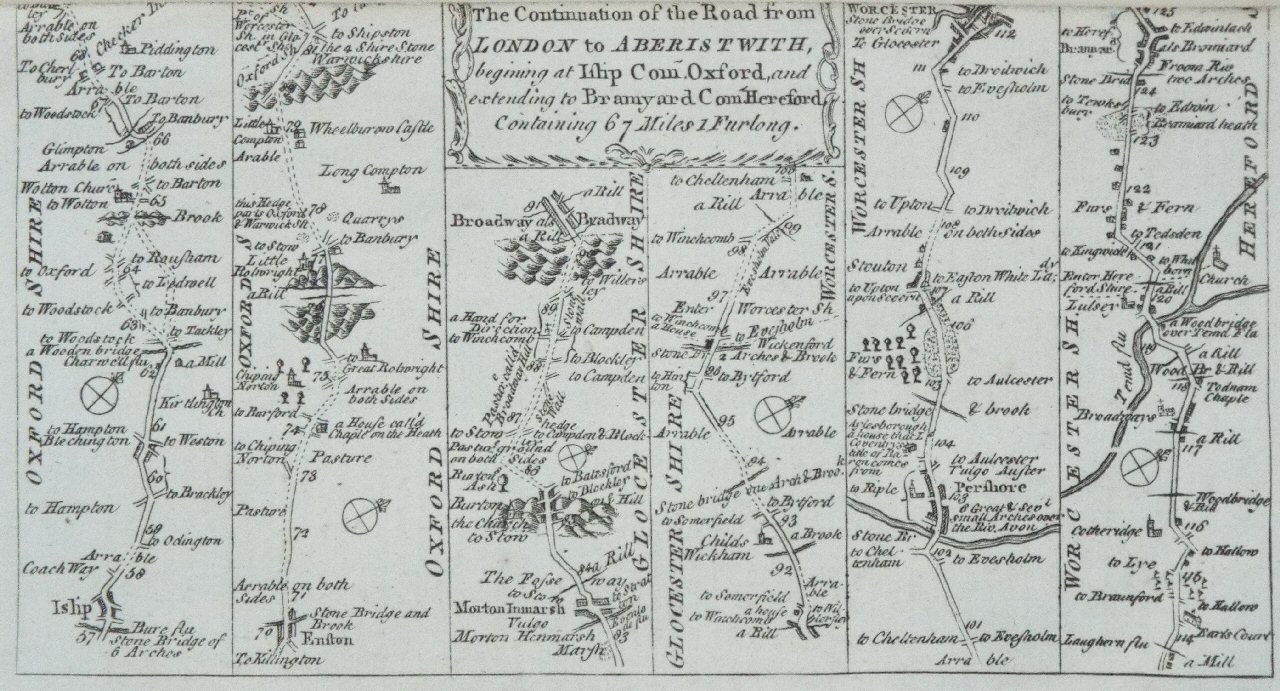 The Continuation of the Road from
LONDON to ABERISTWITH,
begining at Islip Com. Oxford, and
extending to Bramyard Com. Hereford
Containing 67 Miles 1 Furlong.
Arrable on
both sides
68
Piddington
To Barton
Arra ble
67
To Barton
to Woodstock
To Banbury
66
Glimpton
Arrable on both sides
Wotton Church
to Barton
to Wotton
65
Brook
to Rousham
to Oxford
64
to Ledwell
to Woodstock
to Banbury
63
to Tackley
to Woodstock
a Wooden bridge
Charwell flu
a Mill
62
Kirtlington
Ch
61
to Hampton
Blechington
to Weston
60
to Brackley
to Hampton
59
to Odington
Arra ble
Coach Way
58
Islip
57
Bure flu
Stone Bridge of
6 Arches
OXFORD SHIRE
to Shipston
the 4 Shire Stone
Warwickshire
Oxford Sh
79
Wheelburow Castle
Little
Compton
Arable
Long Compton
this Hedge
parts Oxford
& Warwick Sh
78
Quarrys
to Banbury
to Stow
Little
Rolwright
77
a Rill
to
Great Rolwright
Chiping
Norton
75
Arrable on
both Sides
to Barford
74
a House call'd
Chaple on the Heath
to Chiping
Norton
Pasture
73
Pasture
72
Arrable on both
Sides
71
Stone Bridge and
Brook
70
Enston
To Killington
OXFORD S
OXFORD SHIRE
91
a Rill
Broadway als Bradway
a Rill
to Willersley
89
a Hand for
Direction
to Winchcomb
to Campden
to Blockley
to Campden
Stone
Wall
87
hedge
to Stow
to Campden & Block
Pasture ground
on both Sides
86
to Battsford
to Blockley
on a Hill
Burton
the Church
to Stow
84
a Rill
The Fosse way
to Stow
Morton Inmarsh
Vulgo
Morton Henmarsh
Marsh
83
GLOCESTER SHIRE
to Cheltenham
100
a Rill
Arra ble
99
to Winchcomb
98
Arrable
Arrable
97
Enter
Worcester Sh
to Winchcomb
a House
to Evesholm
to Wickenford
2 Arches & Brook
96
to Bytford
95
Arrable
Arrable
94
Stone bridge one Arch & Brook
to Bytford
to Somerfield
93
Childs
Wickham
a Brook
92
Arra-
ble
to Somerfield
a house
to Winchcomb
a Rill
GLOCESTER SHIRE
WORCESTER S.
WORCESTER
Stone Bridge
over Severn
To Glocester
112
111
to Droitwich
to Evesholm
110
109
to Upton
to Droitwich
108
Arrable on both sides
Stouton
to Upton
upon Severn
a Rill
106
Furs
& Fern
105
to Aulcester
Stone bridge & brook
104
to Aulcester
Vulgo Auster
to Riple
Pershore
103
6 Great & Sev.l
small Arches over
the Riv. Avon
Stone Br
to Cheltenham
102
to Evesholm
101
to Cheltenham
to Evesholm
Arra ble
WORCESTER SH
125
to Edwinlach
als Bromiard
Froom Riv
two Arches
Stone Brid
124
to Edwin
Bramiard heath
123
122
Furs & Fern
to Tedsden
to Kingwick
121
Enter Hereford Shire
a Rill
120
Lulser
Church
a Woodbridge
over Temd Flu
119
a Rill
Wood Br & Rill
118
Todnam
Chaple
Broadways
a Rill
117
Woodbridge
& Rill
116
Cotheridge
to Hallow
to Lye
115
to Hallow
Earls Court
Laughern flu
114
a Mill
Temd flu
WORCESTER SH.
HEREFORD S